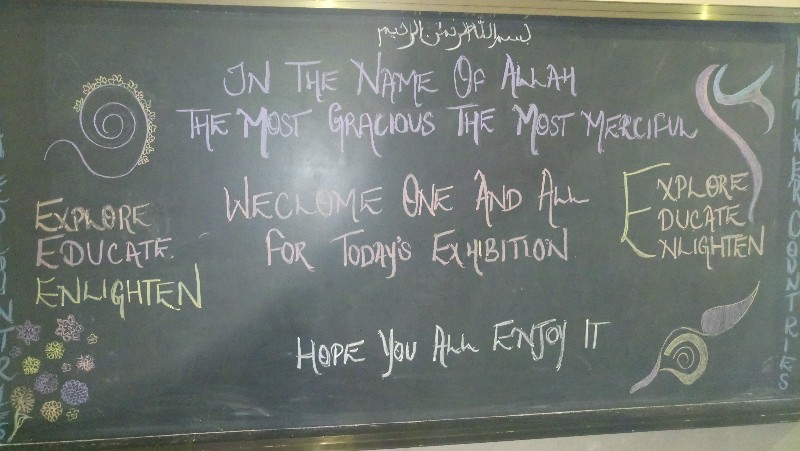 بسم الله الرحمن الرحيم
IN THE NAME OF ALLAH
THE MOST GRACIOUS THE MOST MERCIFUL
WECLOME ONE AND ALL
FOR TODAY'S EXHIBITION
HOPE YOU ALL ENJOY IT
EXPLORE
EDUCATE
ENLIGHTEN
EXPLORE
EDUCATE
ENLIGHTEN
COUNTRIES